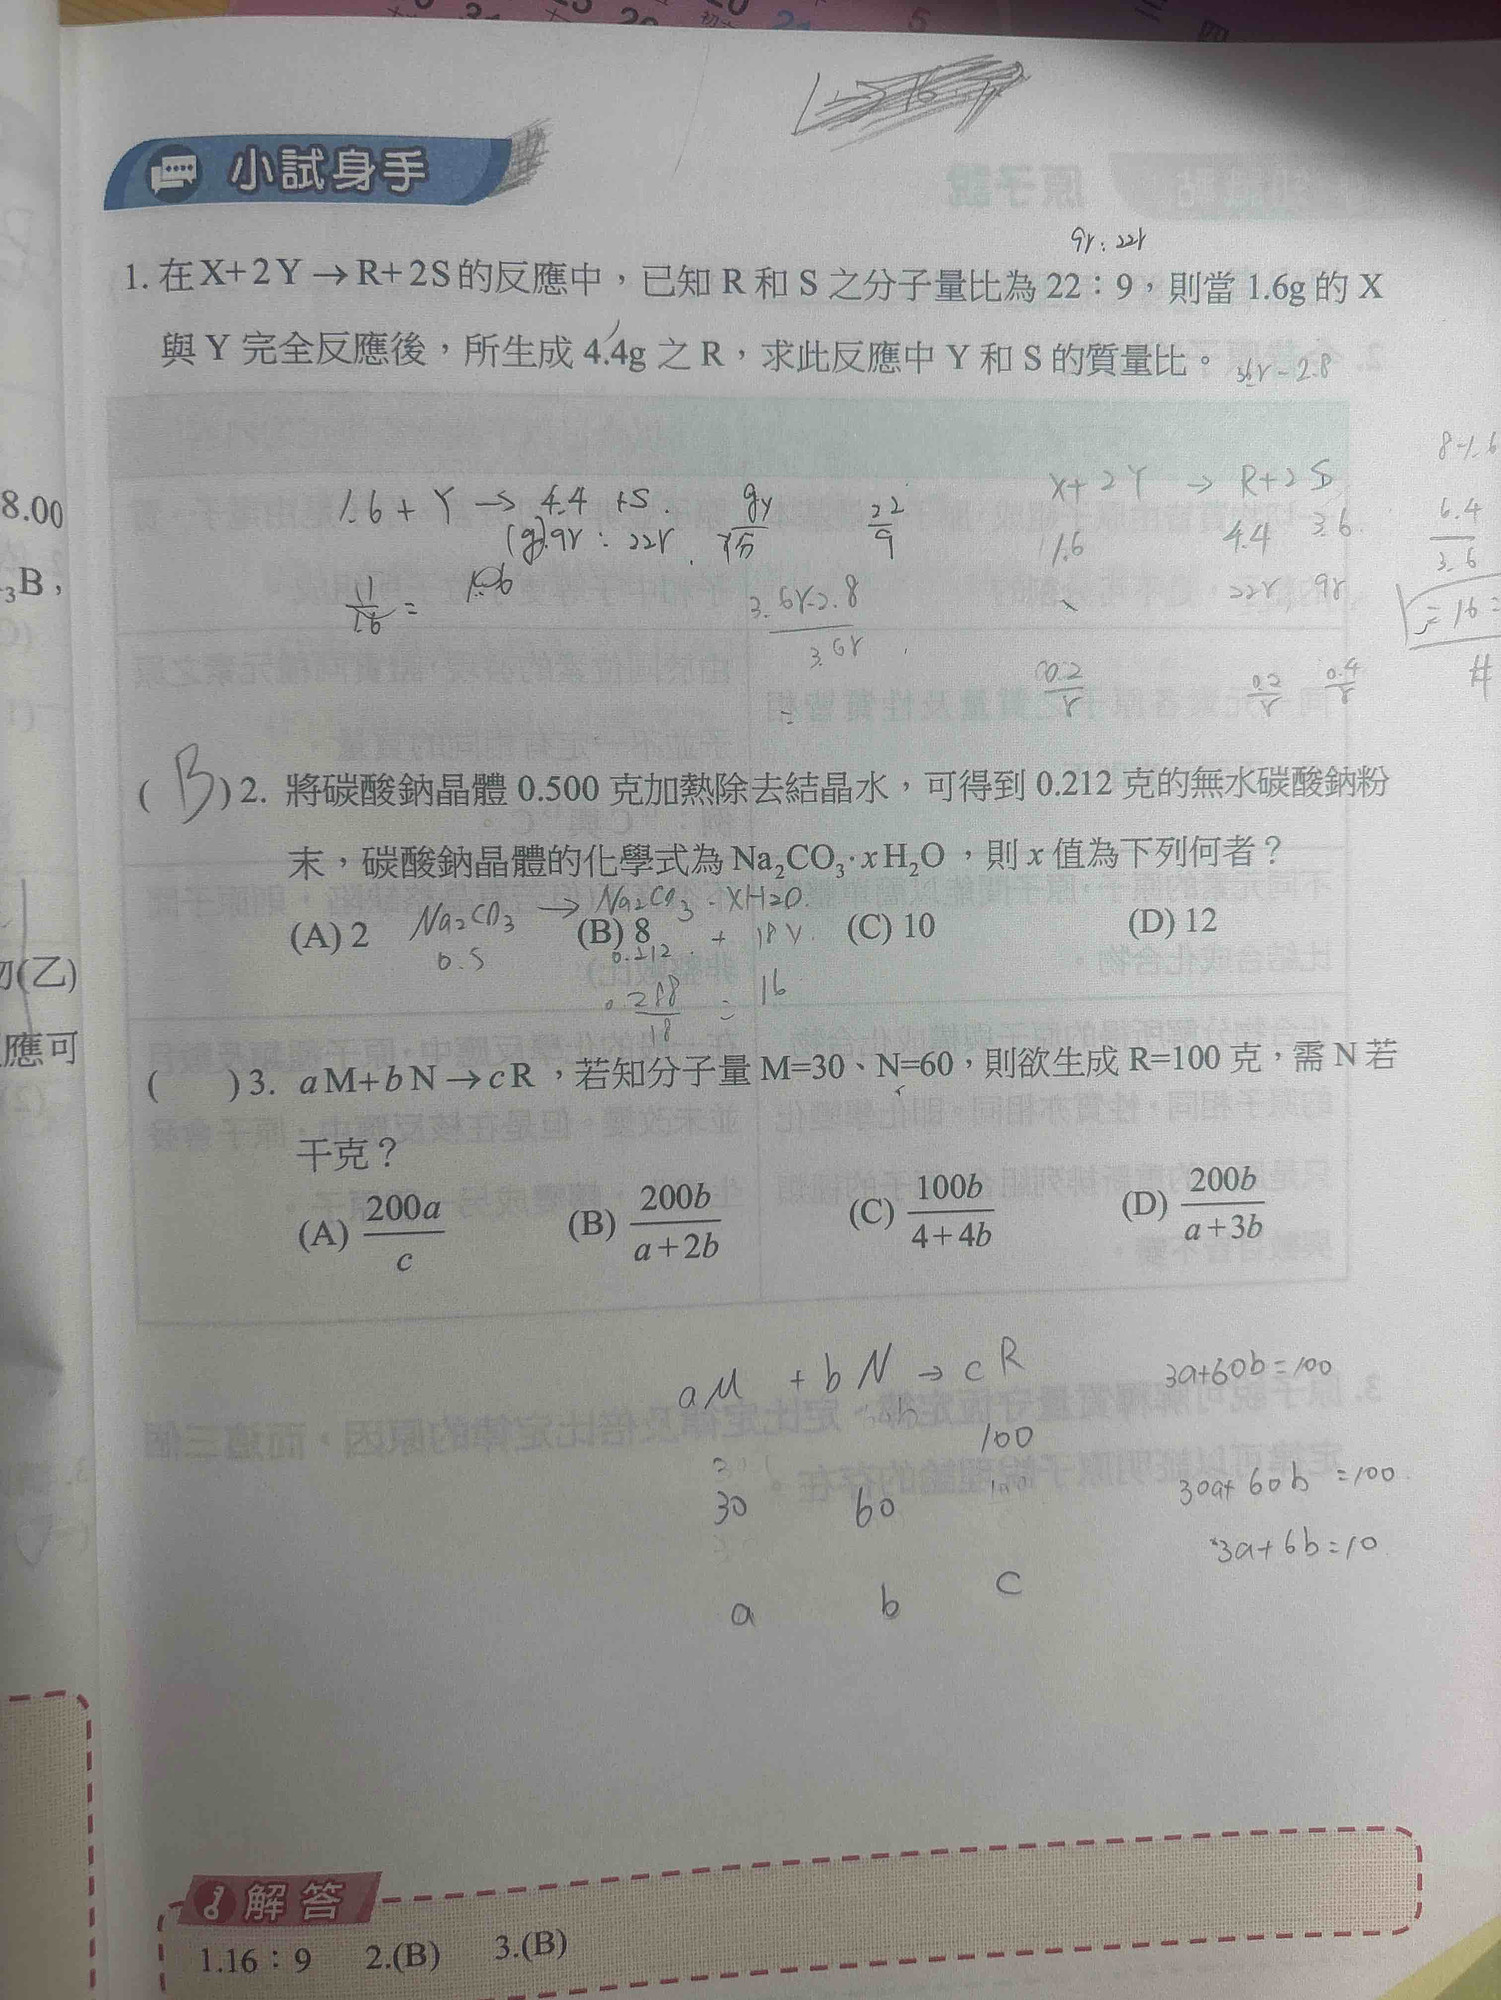 小試身手
9r : 22r
1. 在X+2Y→R+2S的反應中，已知 R 和 S 之分子量比為 22：9，則當 1.6g 的 X
與 Y 完全反應後，所生成 4.4g 之 R，求此反應中 Y 和 S 的質量比。
X+2Y → R+2S
1.6 + Y → 4.4 +S.
22
9
1.6 4.4 3.6
6.4
3.6
(g) 9r : 22r
22r 9r
3.6r-2.8
3.6r
0.2
r
0.2
r
0.4
r
( B ) 2. 將碳酸鈉晶體 0.500 克加熱除去結晶水，可得到 0.212 克的無水碳酸鈉粉
末，碳酸鈉晶體的化學式為 Na₂CO₃·xH₂O，則 x 值為下列何者？
Na2CO3 → Na2CO3 · XH2O.
(A) 2 (B) 8 (C) 10 (D) 12
0.5 0.212 + 18
0.288 = 16
18
( ) 3. aM+bN→cR，若知分子量 M=30、N=60，則欲生成 R=100 克，需 N 若
干克？
(A) 200a/c (B) 200b/a+2b (C) 100b/4+4b (D) 200b/a+3b
aM + bN → cR
3a+60b=100
100
30 60
30a+60b=100
3a+6b=10
a b c
解答
1.16：9 2.(B) 3.(B)
8.00
₃B，
(乙)
應可